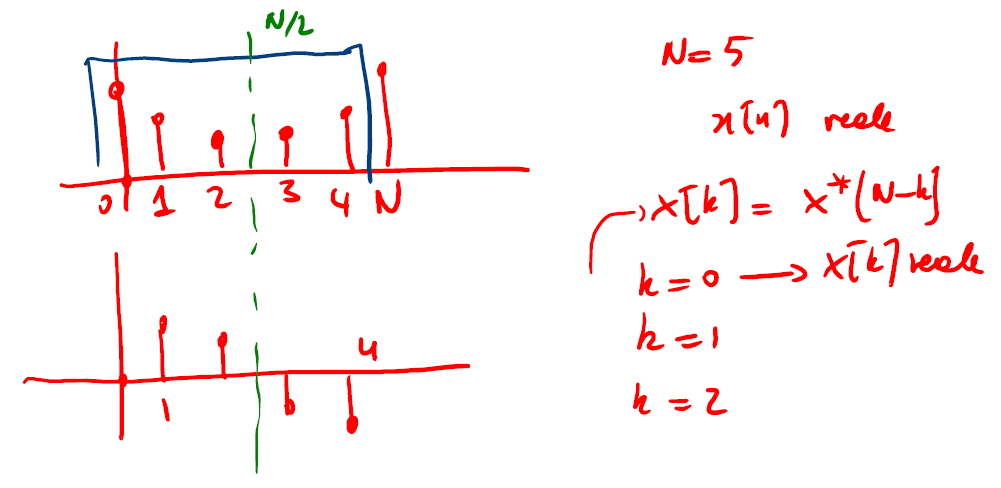 N/2
0 1 2 3 4 N
1 4
N=5
x[n] reale
X[k] = X*[N-k]
k=0 → X[k] reale
k=1
k=2